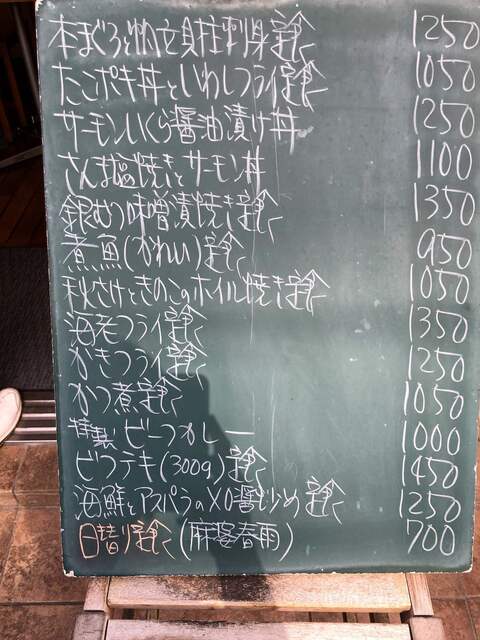 本まぐろと帆立貝柱刺身定食 1250
たこポキ丼といわしフライ定食 1050
サーモンいくら醤油漬け丼 1250
さんま塩焼きとサーモン丼 1100
銀むつ味噌漬焼き定食 1350
煮魚(かれい)定食 950
秋さけときのこのホイル焼き定食 1050
海老フライ定食 1350
かきフライ定食 1250
かつ煮定食 1050
特製ビーフカレー 1000
ビフテキ(300g)定食 1450
海鮮とアスパラのXO醤炒め定食 1250
日替り定食(麻婆春雨) 700